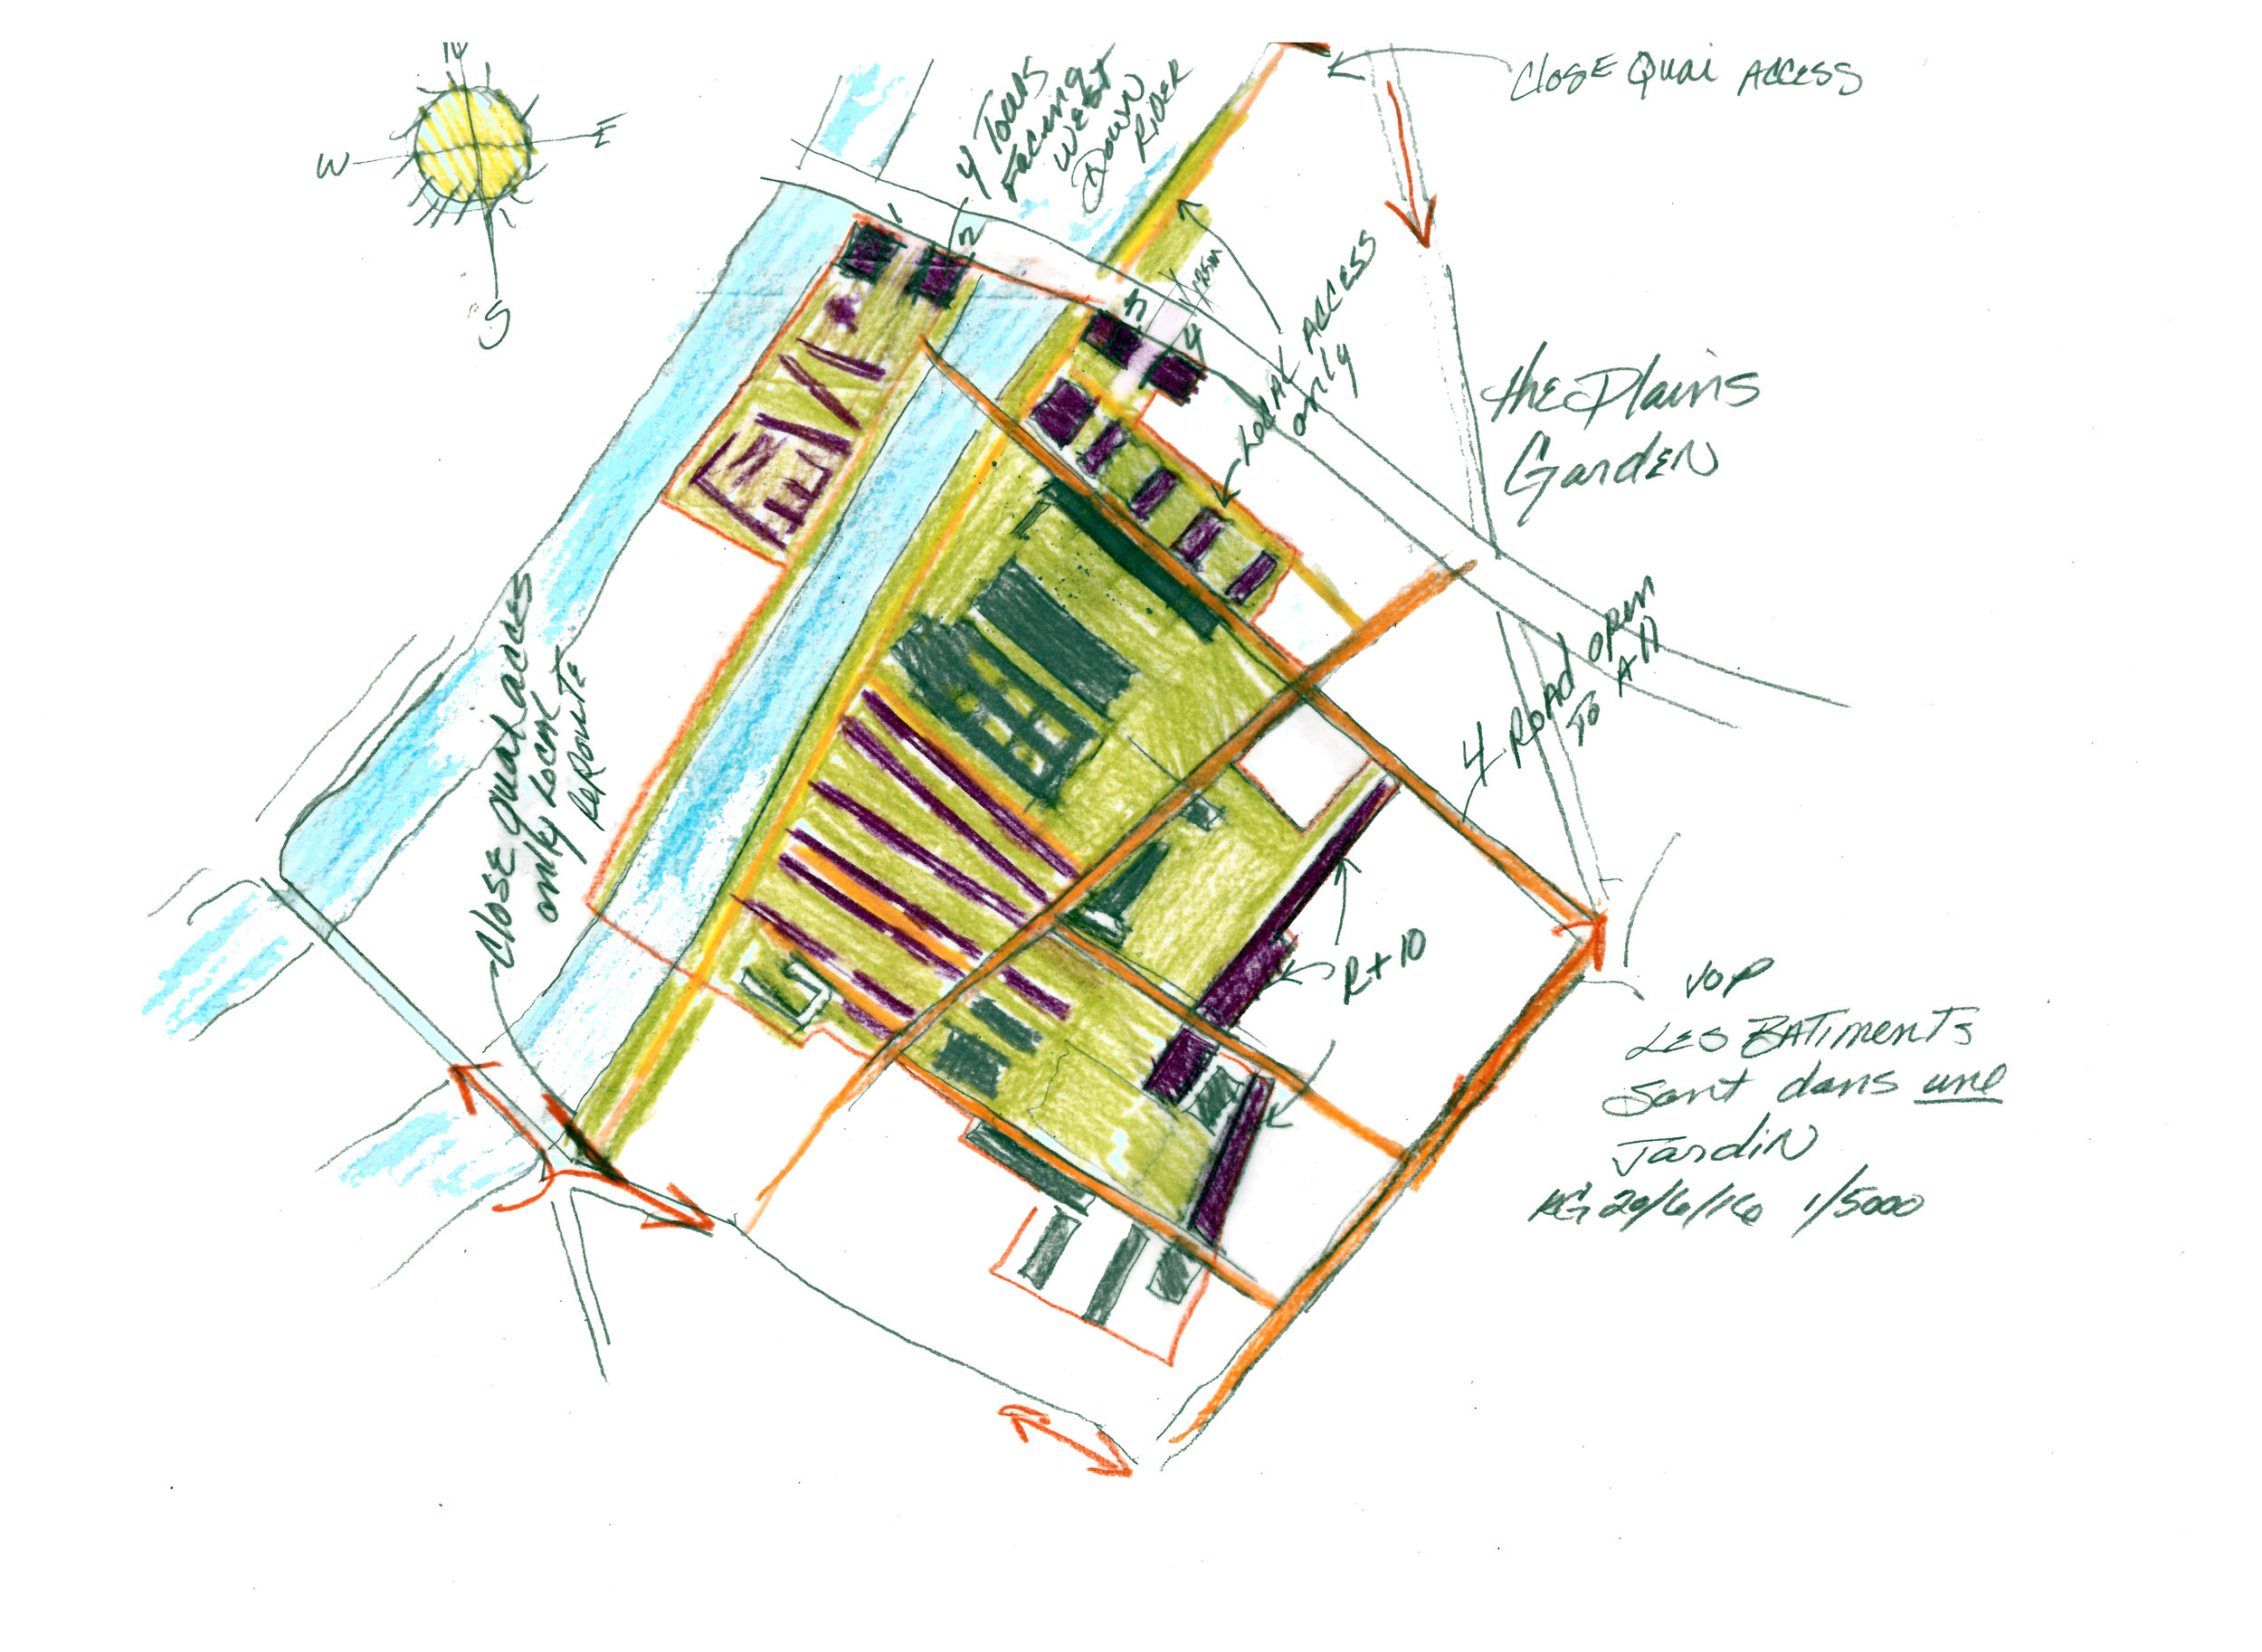 N
W
E
S
4 Tours
Facing
West
Down
River
Close Quai Access
1
2
3
4
25m
Local Access
only
the Plains
Garden
Close quai acces
only Local
Reroute
4 Road open
To All
R+10
VOP
Les Batiments
Sont dans une
Jardin
KG 20/6/16 1/5000